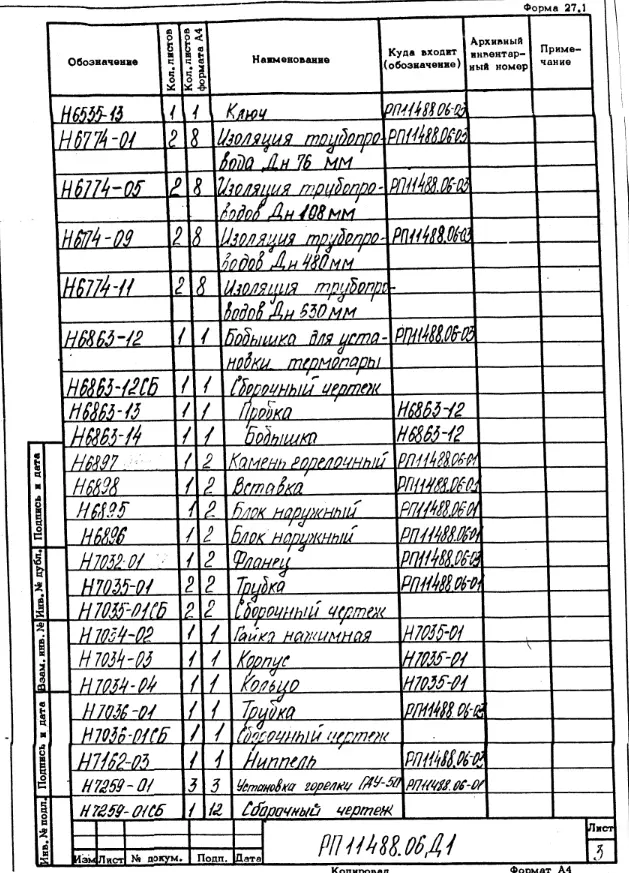 Форма 27,1
Обозначение Кол. листов Кол. листов формата А4 Наименование Куда входит (обозначение) Архивный инвентарный номер Примечание
Н6535-13 1 1 Ключ РП11488.06-03
Н6774-01 2 8 Изоляция трубопро- РП11488.06-03
вода Дн 76 мм
Н6774-05 2 8 Изоляция трубопро- РП11488.06-03
водов Дн 108 мм
Н674-09 2 8 Изоляция трубопро- РП11488.06-03
водов Дн 480 мм
Н6774-11 2 8 Изоляция трубопро-
водов Дн 530 мм
Н6863-12 1 1 Бобышка для уста- РП11488.06-03
новки термопары
Н6863-12СБ 1 1 Сборочный чертеж
Н6863-13 1 1 Пробка Н6863-12
Н6863-14 1 1 Бобышка Н6863-12
Н6897 1 2 Камень горелочный РП11488.06-01
Н6898 1 2 Вставка РП11488.06-01
Н6895 1 2 Блок наружный РП11488.06-01
Н6896 1 2 Блок наружный РП11488.06-01
Н7032-01 1 2 Фланец РП11488.06-03
Н7035-01 2 2 Трубка РП11488.06-01
Н7035-01СБ 2 2 Сборочный чертеж
Н7034-02 1 1 Гайка нажимная Н7035-01
Н7034-03 1 1 Корпус Н7035-01
Н7034-04 1 1 Кольцо Н7035-01
Н7036-01 1 1 Трубка РП11488.06-03
Н7036-01СБ 1 1 Сборочный чертеж
Н7162-03 1 1 Ниппель РП11488.06-03
Н7259-01 3 3 Установка горелки ГАУ-50 РП11488.06-01
Н7259-01СБ 1 12 Сборочный чертеж
Инв. № подл. Подпись и дата Взам. инв. № Инв. № дубл. Подпись и дата
Изм Лист № докум. Подп. Дата
РП11488.06Д1
Лист
3
Копировал Формат А4